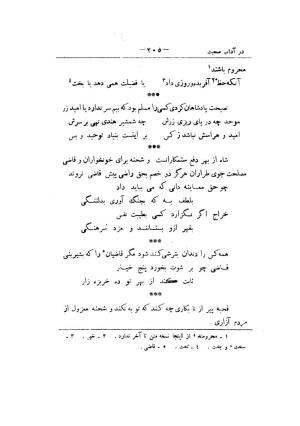 در آداب صحبت
- ۲۰۵ -
محروم باشند۱
آنکه حظ۲ آفرید و روزی داد۳ یا فضیلت همی دهد یا بخت٤
نصیحت پادشاهان کردن کسی را مسلم بود که بیم سر ندارد یا امید زر
موحد چه در پای ریزی زرش چه شمشیر هندی نهی بر سرش
امید و هراسش نباشد ز کس بر اینست بنیاد توحید و بس
***
شاه از بهر دفع ستمکارانست و شحنه برای خونخواران و قاضی
مصلحت جوی طراران هرگز دو خصم بحق راضی پیش قاضی نروند
چو حق معاینه دانی که می بباید داد
بلطف به که بجنگ آوری بدلتنگی
خراج اگر نگزارد کسی بطیبت نفس
بقهر ازو بستانند و مزد سرهنگی
***
همه کس را دندان بترشی کند شود مگر قاضیان۵ را که بشیرینی
قاضی چو بر شوت بخورد پنج خیار
ثابت کند از بهر تو ده خربزه زار
***
قحبه پیر از نابکاری چه کند که توبه نکند و شحنه معزول از
مردم آزاری
۱ - محرومند ؛ از اینجا نسخه متن تا آخر ندارد. ۲ - خهر. ۳ -
سخت ؛ و بخت. ٤ - تخت. ۵ - قاضی.